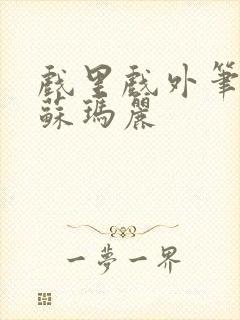 戲里戲外筆
蘇瑪麗
一夢一界